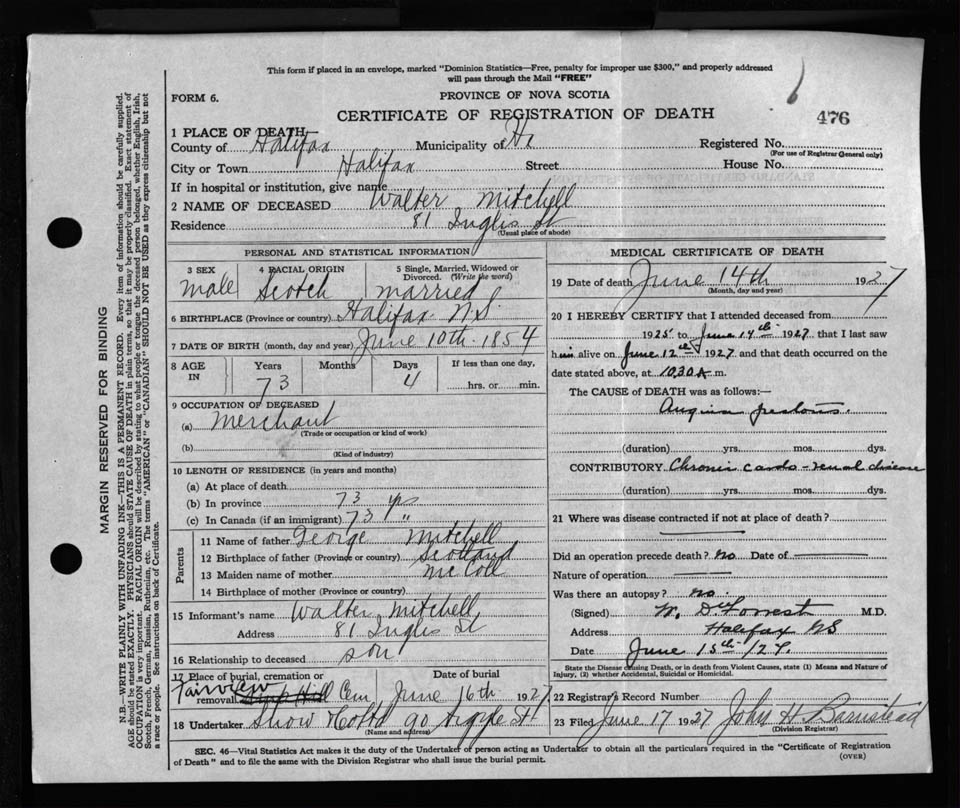 This form if placed in an envelope, marked "Dominion Statistics—Free, penalty for improper use $300," and properly addressed
will pass through the Mail "FREE"
FORM 6.
PROVINCE OF NOVA SCOTIA
CERTIFICATE OF REGISTRATION OF DEATH
476
1 PLACE OF DEATH
County of Halifax Municipality of Hx Registered No.
(For use of Registrar General only)
City or Town Halifax Street House No.
If in hospital or institution, give name
2 NAME OF DECEASED Walter Mitchell
Residence 81 Inglis St
(Usual place of abode)
PERSONAL AND STATISTICAL INFORMATION
3 SEX 4 RACIAL ORIGIN 5 Single, Married, Widowed or Divorced. (Write the word)
male Scotch married
6 BIRTHPLACE (Province or country) Halifax N.S.
7 DATE OF BIRTH (month, day and year) June 10th 1854
8 AGE IN Years Months Days If less than one day,
73 4 hrs. or min.
9 OCCUPATION OF DECEASED
(a) Merchant
(Trade or occupation or kind of work)
(b)
(Kind of industry)
10 LENGTH OF RESIDENCE (in years and months)
(a) At place of death
(b) In province 73 yrs
(c) In Canada (if an immigrant) 73 "
Parents
11 Name of father George Mitchell
12 Birthplace of father (Province or country) Scotland
13 Maiden name of mother McColl
14 Birthplace of mother (Province or country)
15 Informant's name Walter Mitchell
Address 81 Inglis St
16 Relationship to deceased son
17 Place of burial, cremation or removal Date of burial
Fairview Cem June 16th 1927
18 Undertaker Snow & Co Ltd 90 Argyle St
(Name and address)
MEDICAL CERTIFICATE OF DEATH
19 Date of death June 14th 1927
(Month, day and year)
20 I HEREBY CERTIFY that I attended deceased from
1925 to June 14th 1927 that I last saw
him alive on June 12th 1927 and that death occurred on the
date stated above, at 10.30 A m.
The CAUSE of DEATH was as follows:—
Angina pectoris.
(duration) yrs. mos. dys.
CONTRIBUTORY Chronic cardo-renal disease
(duration) yrs. mos. dys.
21 Where was disease contracted if not at place of death?
Did an operation precede death? no Date of
Nature of operation
Was there an autopsy? no.
(Signed) W. D. Forrest M.D.
Address Halifax NS
Date June 15th/27.
State the Disease causing Death, or in death from Violent Causes, state (1) Means and Nature of
Injury, (2) whether Accidental, Suicidal or Homicidal.
22 Registrar's Record Number
23 Filed June 17 1927 John H Barnstead
(Division Registrar)
SEC. 46—Vital Statistics Act makes it the duty of the Undertaker or person acting as Undertaker to obtain all the particulars required in the "Certificate of Registration
of Death" and to file the same with the Division Registrar who shall issue the burial permit.
(OVER)
MARGIN RESERVED FOR BINDING
N.B.—WRITE PLAINLY WITH UNFADING INK—THIS IS A PERMANENT RECORD. Every item of information should be carefully supplied.
AGE should be stated EXACTLY. PHYSICIANS should STATE CAUSE OF DEATH in plain terms, so that it may be properly classified. Exact statement of
OCCUPATION is very important. RACIAL ORIGIN will be described by stating to what people or tongue the deceased person belonged, whether English, Irish,
Scotch, French, German, Russian, Ruthenian, etc. The terms "AMERICAN" or "CANADIAN" SHOULD NOT BE USED as they express citizenship but not
a race or people. See instructions on back of Certificate.